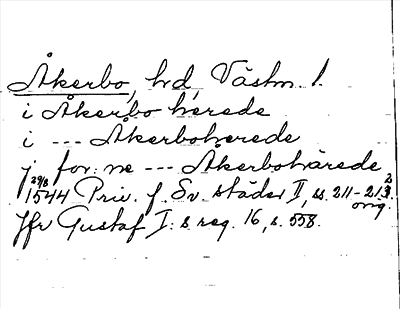 Åkerbo, hd, Västm. l.
i Åkerbo herede
i --- Åkerboherede
j for:ne --- Åkerbohärede
29/8 1544 Priv. f. Sv. städer II, ss. 211-213. orig.
Jfr Gustaf I:s reg. 16, s. 558.